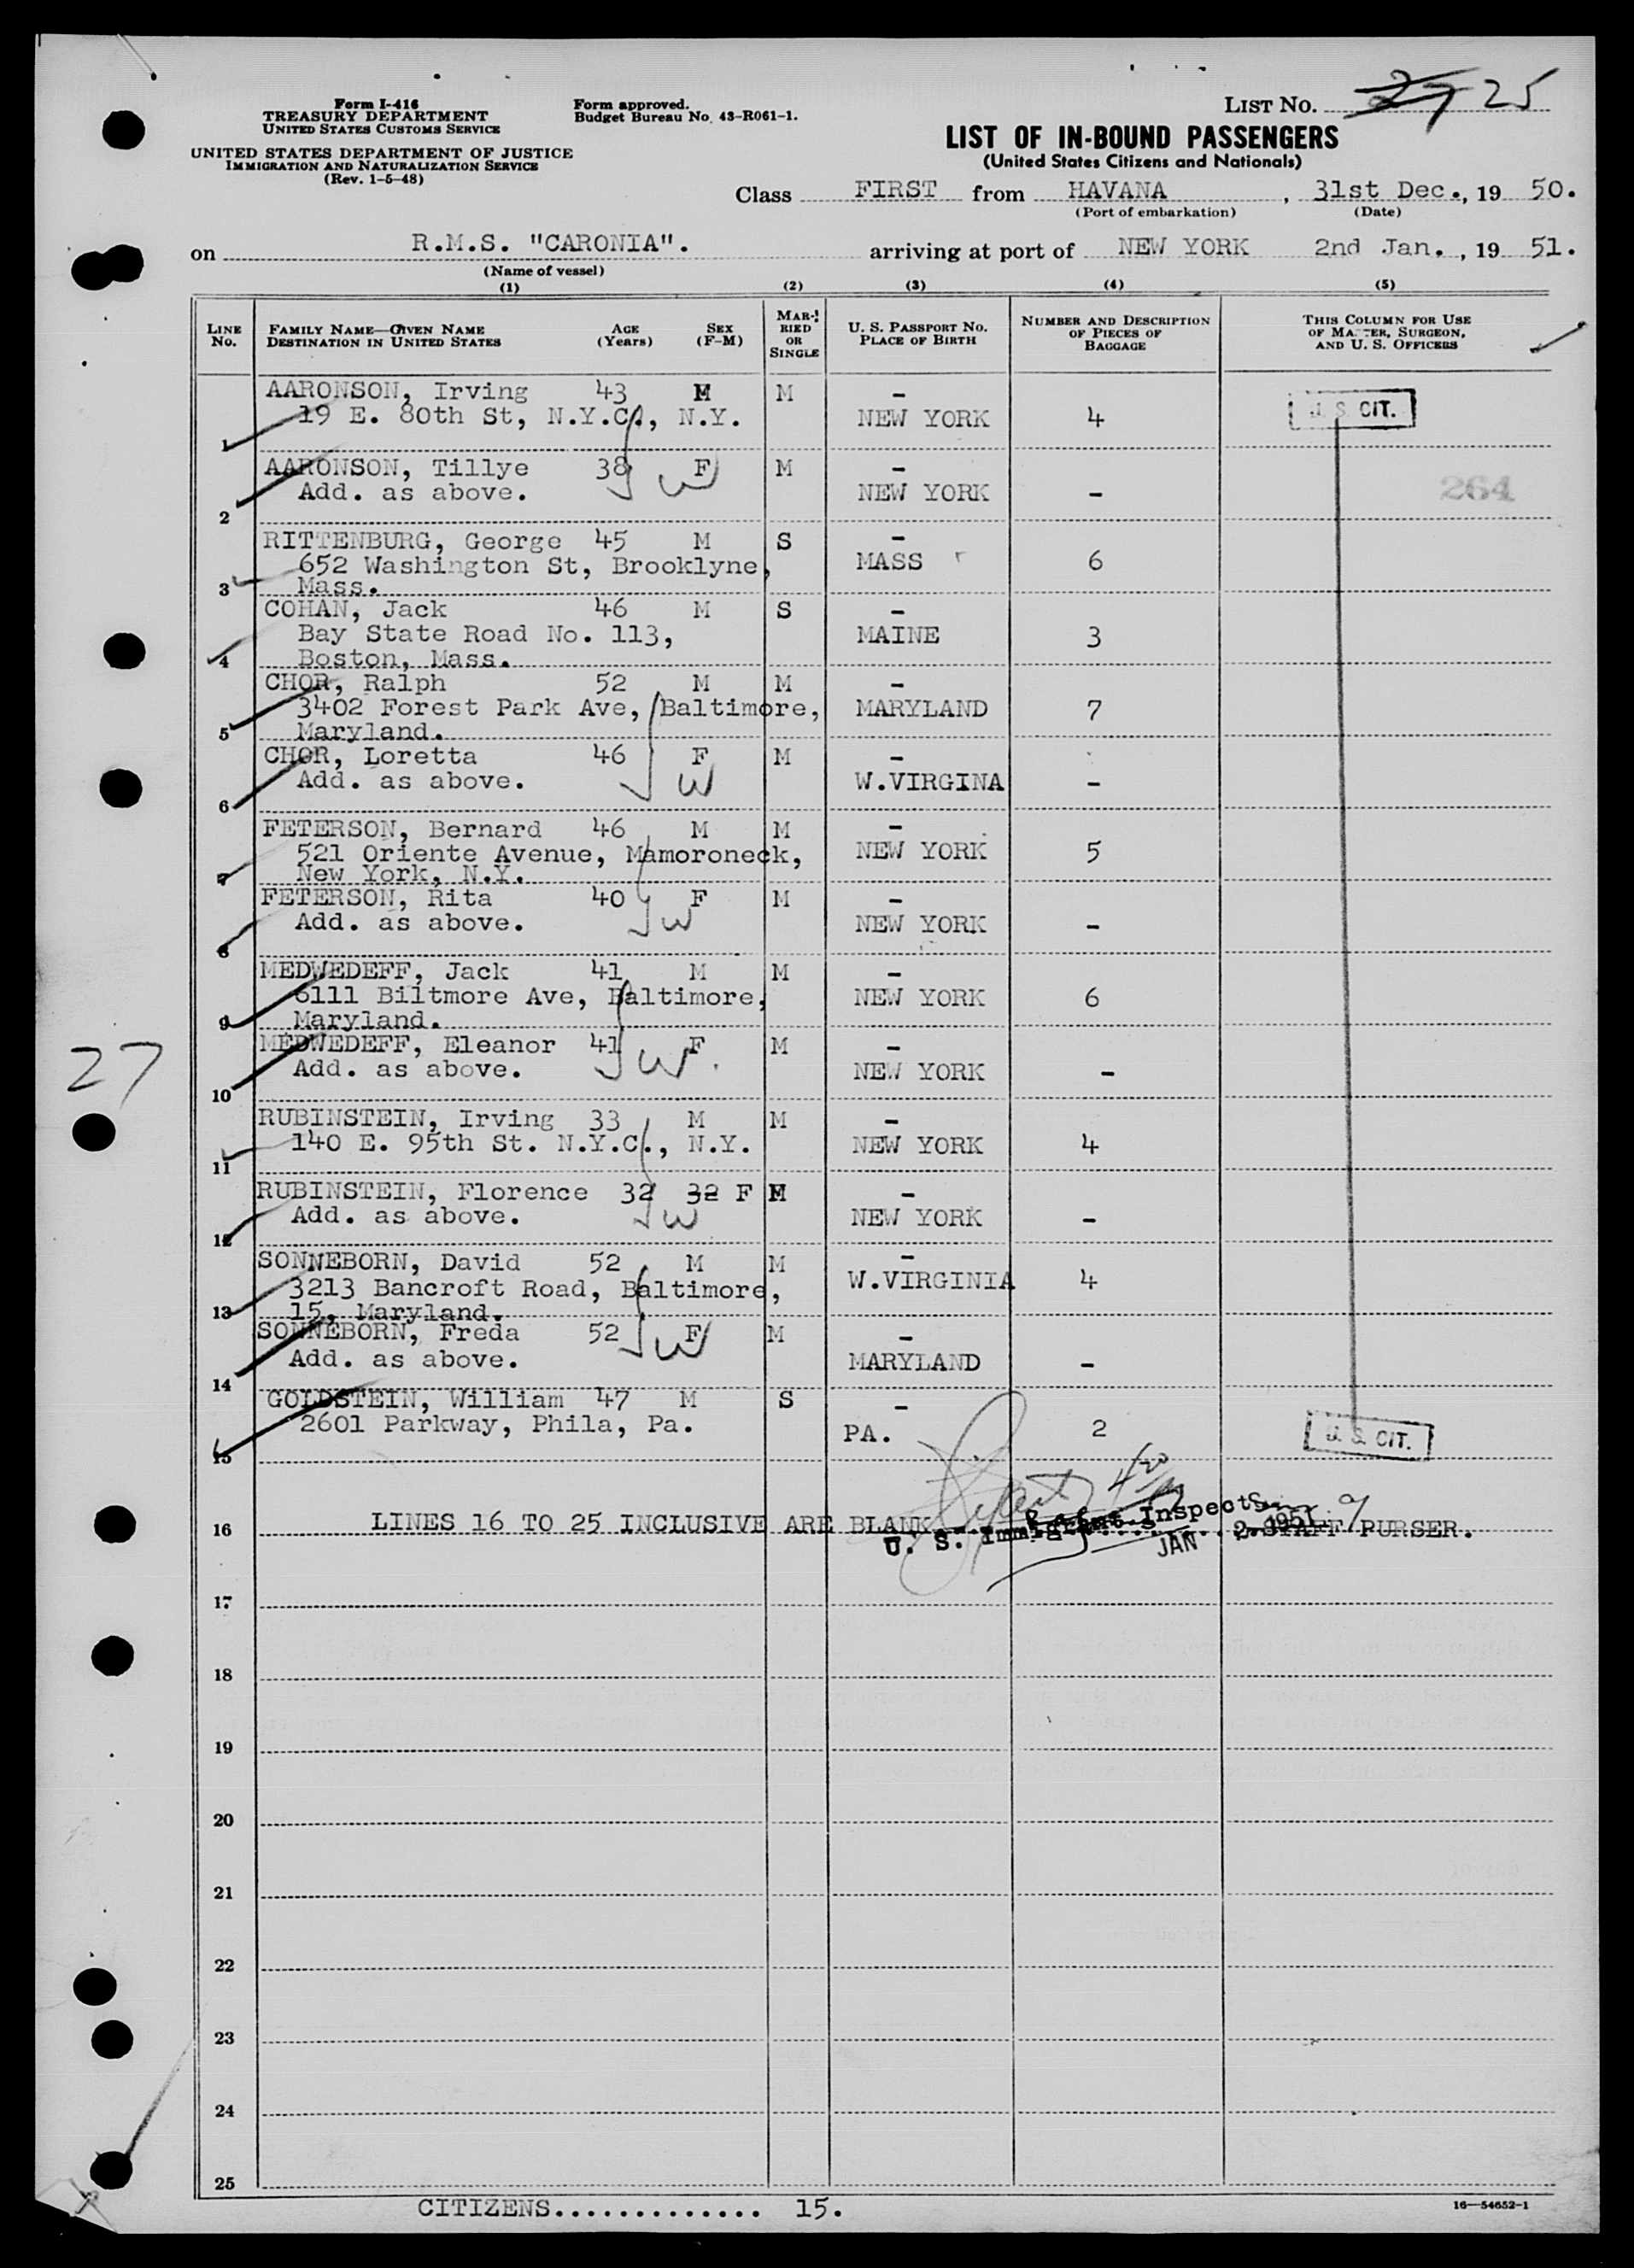 Form I-416
TREASURY DEPARTMENT
UNITED STATES CUSTOMS SERVICE
UNITED STATES DEPARTMENT OF JUSTICE
IMMIGRATION AND NATURALIZATION SERVICE
(Rev. 1-5-48)
Form approved.
Budget Bureau No. 43-R061-1.
LIST NO. 27 25
LIST OF IN-BOUND PASSENGERS
(United States Citizens and Nationals)
Class FIRST from HAVANA, 31st Dec., 19 50.
(Port of embarkation) (Date)
on R.M.S. "CARONIA". arriving at port of NEW YORK 2nd Jan., 19 51.
(Name of vessel)
(1) (2) (3) (4) (5)
LINE NO.
FAMILY NAME—GIVEN NAME
DESTINATION IN UNITED STATES
AGE (Years)
SEX (F-M)
MARRIED OR SINGLE
U. S. PASSPORT NO.
PLACE OF BIRTH
NUMBER AND DESCRIPTION OF PIECES OF BAGGAGE
THIS COLUMN FOR USE OF MASTER, SURGEON, AND U. S. OFFICERS
AARONSON, Irving 43 M M -
19 E. 80th St, N.Y.C., N.Y. NEW YORK 4 U. S. CIT.
1
AARONSON, Tillye 38 F M -
W
Add. as above. NEW YORK - 264
2
RITTENBURG, George 45 M S -
652 Washington St, Brooklyne, MASS 6
3 Mass.
COHAN, Jack 46 M S -
Bay State Road No. 113, MAINE 3
4 Boston, Mass.
CHOR, Ralph 52 M M -
3402 Forest Park Ave, Baltimore, MARYLAND 7
5 Maryland.
CHOR, Loretta 46 F M -
W
Add. as above. W.VIRGINA -
6
FETERSON, Bernard 46 M M -
521 Oriente Avenue, Mamoroneck, NEW YORK 5
7 New York, N.Y.
FETERSON, Rita 40 F M -
W
Add. as above. NEW YORK -
8
MEDWEDEFF, Jack 41 M M -
6111 Biltmore Ave, Baltimore, NEW YORK 6
9 Maryland.
MEDWEDEFF, Eleanor 41 F M -
W
Add. as above. NEW YORK -
27
10
RUBINSTEIN, Irving 33 M M -
140 E. 95th St. N.Y.C., N.Y. NEW YORK 4
11
RUBINSTEIN, Florence 32 32 F M -
W
Add. as above. NEW YORK -
12
SONNEBORN, David 52 M M -
3213 Bancroft Road, Baltimore, W.VIRGINIA 4
13 15, Maryland.
SONNEBORN, Freda 52 F M -
W
Add. as above. MARYLAND -
14
GOLDSTEIN, William 47 M S -
2601 Parkway, Phila, Pa. PA. 2 U. S. CIT.
15
16 LINES 16 TO 25 INCLUSIVE ARE BLANK STAFF PURSER.
U. S. Immigrant Inspector
JAN 2 1951
17
18
19
20
21
22
23
24
25
CITIZENS............. 15.
16—54652-1